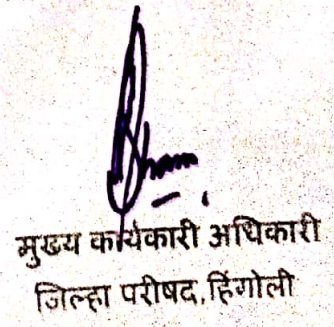 मुख्य कार्यकारी अधिकारी
जिल्हा परीषद, हिंगोली